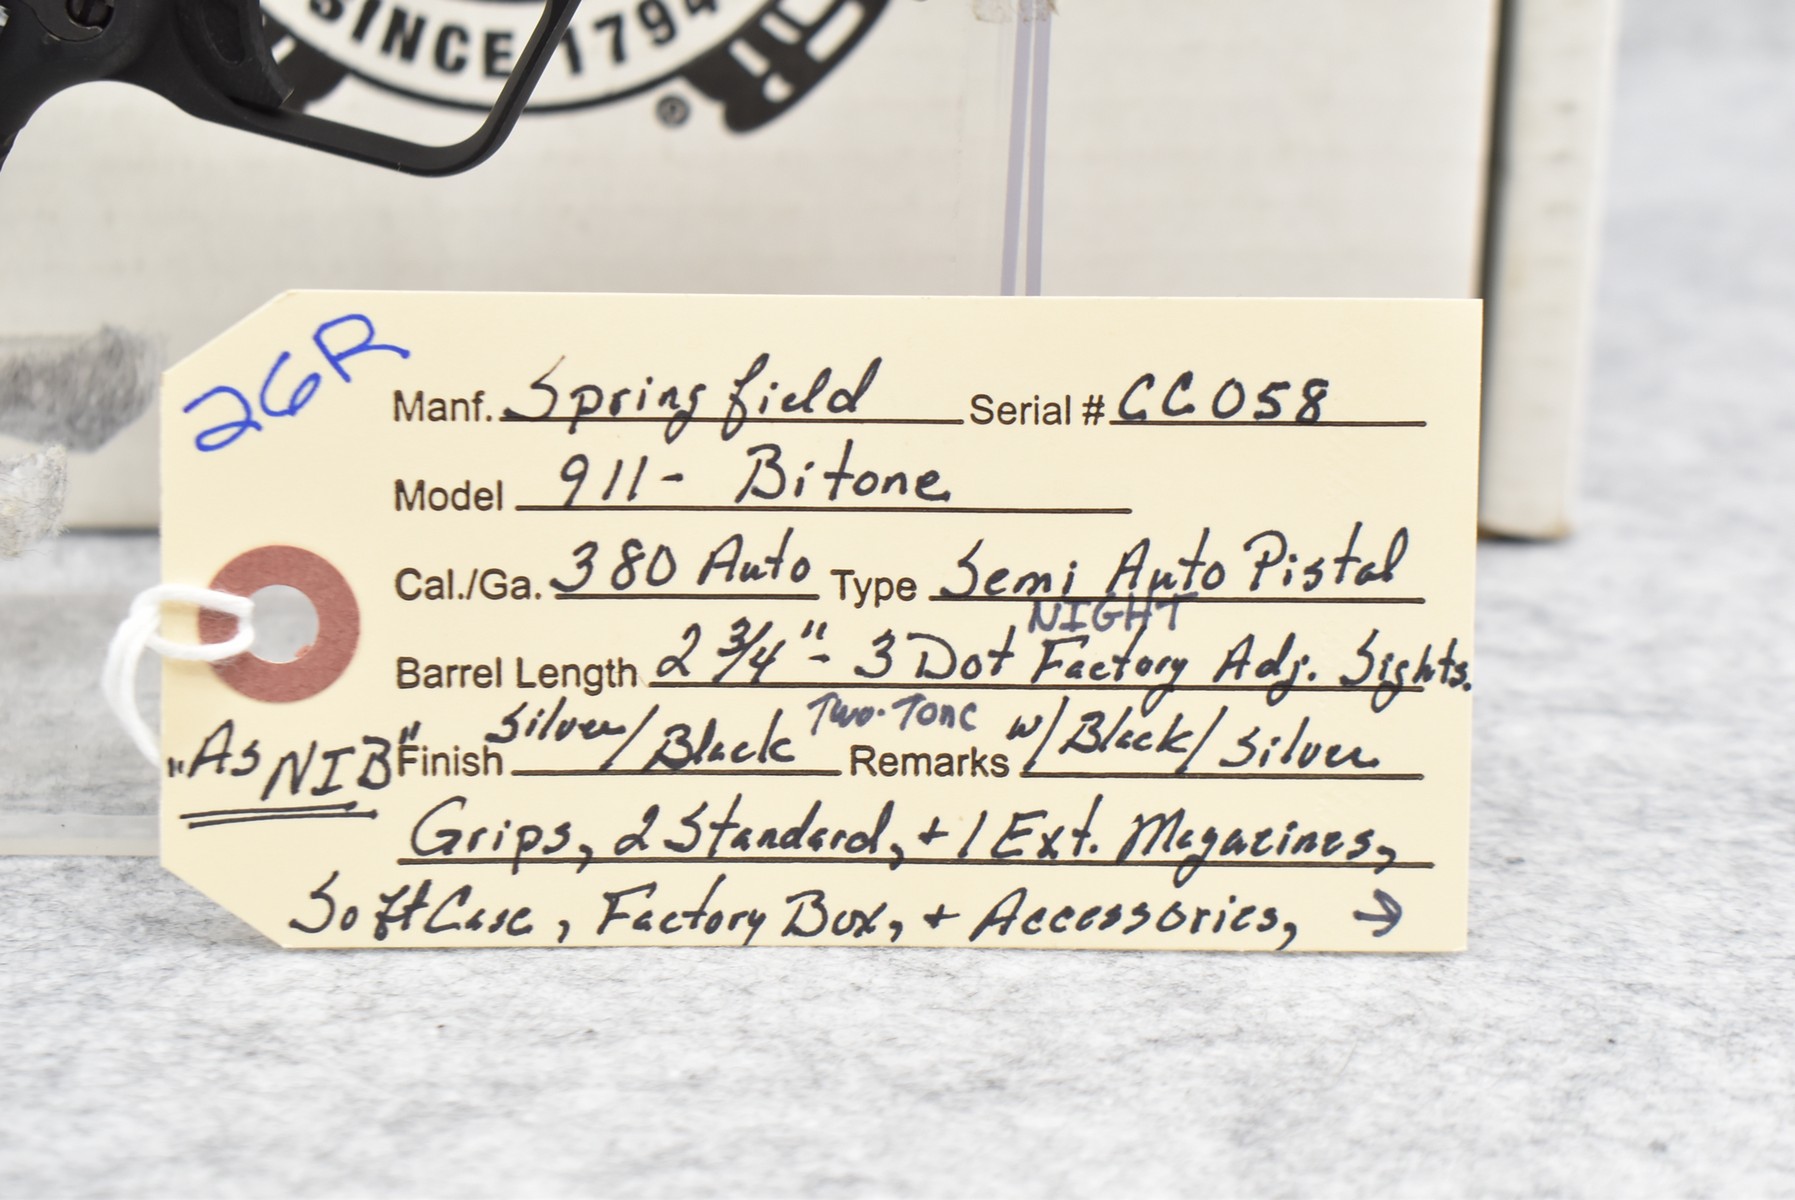 SINCE 1794
®
26R
Manf. Springfield Serial # CC058
Model 911- Bitone
Cal./Ga. 380 Auto Type Semi Auto Pistal
NIGHT
Barrel Length 2 3/4"- 3 Dot Factory Adj. Sights.
"As NIB" Finish Silver/Black Two-Tone Remarks w/Black/Silver
Grips, 2 Standard, + 1 Ext. Magazines,
Soft Case, Factory Box, + Accessories, →